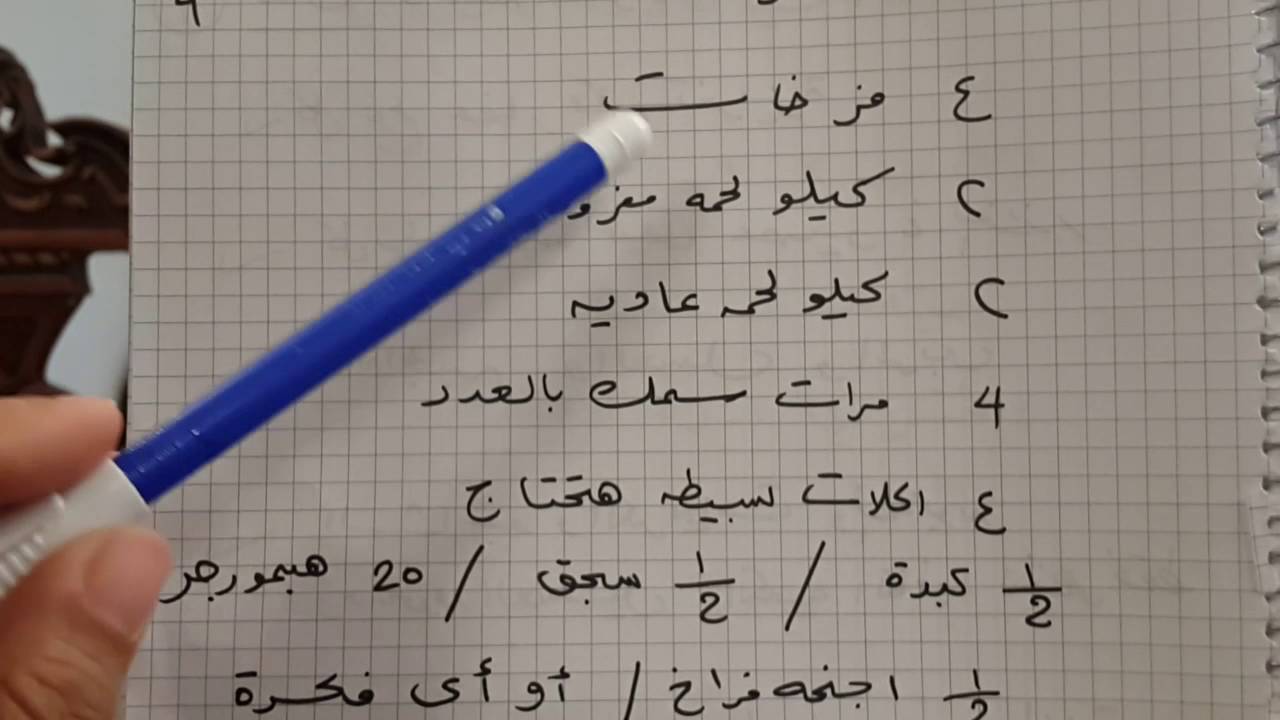 ٤ فرخات
٢ كيلو لحمه
٢ كيلو لحمه عاديه
4 مرات سمك بالعدد
٤ اكلات بسيطه هتحتاج
1/2 كبدة / 1/2 سجق / 20 هيمورجر
1/2 اجنحه فراخ / أو أى فكرة